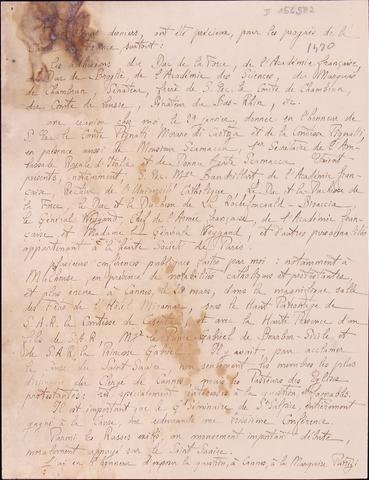 D 156582
1430
derniers, ont été précieux, pour les progrès de la
France, surtout :
Les adhésions du Duc de la Force, de l'Académie Française,
du Duc de Broglie, de l'Académie des Sciences, du Marquis
de Chambrun, Sénateur, frère de S. Exc. le Comte de Chambrun,
du Comte de Leusse, Sénateur du Bas-Rhin, etc.
une réunion chez moi, le 29 janvier, donnée en l'honneur de
S. Exc. le Comte Pignatti Morano di Custoza et de la Comtesse Pignatti,
en présence aussi de Monsieur Scamacca, 1er Secrétaire de l'Am-
bassade Royale d'Italie et de Donna Scamacca. Étaient
présents, notamment, S. Exc. Mgr Baudrillart de l'Académie fran-
çaise, Recteur de l'Université Catholique, le Duc et la Duchesse de
la Force, le Duc et la Duchesse de La Rochefoucauld-
le Général Weygand, Chef de l'Armée française, de l'Académie fran-
çaise et Madame la Générale Weygand, et d'autres personnalités
appartenant à la haute Société de Paris.
Plusieurs conférences publiques faites par moi : notamment à
Mulhouse, en présence de notabilités catholiques et protestantes
et plus encore à Cannes, le 20 mars, dans la magnifique salle
des Fêtes de l'Hôtel Miramar, sous le Haut Patronage de
S.A.R. la Comtesse de Caserta et avec la Haute Présence d'un
fils de S.A.R. Mgr le Prince Gabriel de Bourbon-Sicile et
de S.A.R. la Princesse Gabriel. Il y avait, pour acclamer
la cause du Saint Suaire, non seulement les membres les plus
du Clergé de Cannes, mais les Pasteurs des Églises
protestantes : spécialement intéressés à la question et formidables.
Il est important que le Gd Séminaire de St Sulpice, entièrement
gagné à la Cause, me redemande une troisième Conférence.
Parmi les Russes exilés, un mouvement important débute,
moralement appuyé sur le Saint Suaire.
J'ai eu l'honneur d'exposer la question, à Cannes, à la Marquise Patrizi